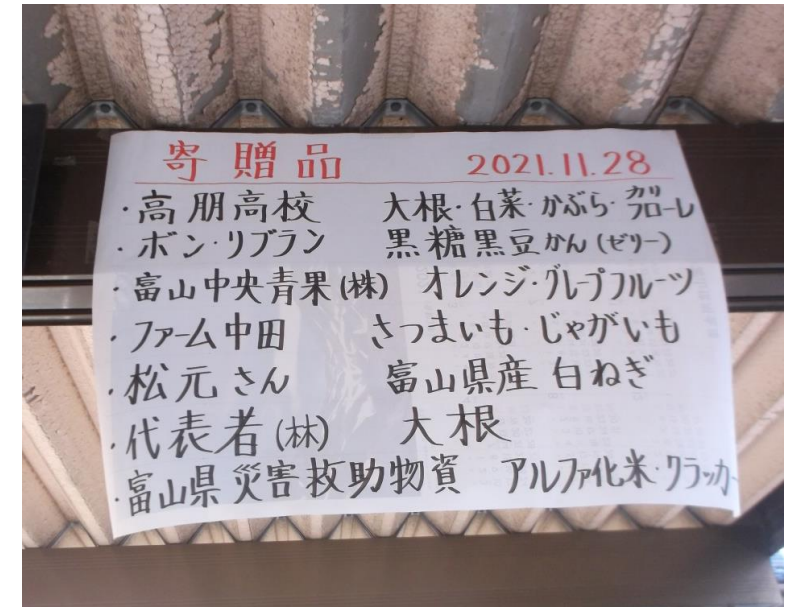 寄贈品 2021.11.28
・高朋高校 大根・白菜・かぶら・カリフローレ
・ボン・リブラン 黒糖黒豆かん(ゼリー)
・富山中央青果(株) オレンジ・グレープフルーツ
・ファーム中田 さつまいも・じゃがいも
・松元さん 富山県産 白ねぎ
・代表者(林) 大根
・富山県災害救助物資 アルファ化米・クラッカー